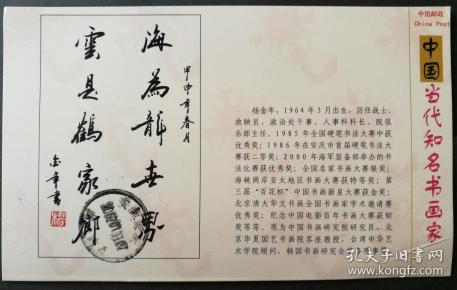 海為龍世界
雲是鶴家鄉
甲申年春月
金年書
中国邮政
China Post
中国当代知名书画家
杨金年，1964年3月出生，历任战士、
放映员，政治处干事，人事科科长，院俱
乐部主任，1985年全国硬笔书法大赛中获
优秀奖；1986年在安庆市首届硬笔书法大
赛获二等奖；2000年海军装备部举办的书
法比赛获优秀奖；全国名家书画大赛银奖；
海峡两岸亚太地区书画大赛获特等奖；第
三届“百花杯”中国书画新星大赛获金奖；
北京清大华文书画全国书画家学术邀请赛
优秀奖；纪念中国电影百年书画大赛获铜
奖等等，现为中国书画研究院研究员、北
京华夏国艺书画院客座教授，台湾中华艺
术学院顾问，韩国书画研究会
孔夫子旧书网
www.kongfz.com